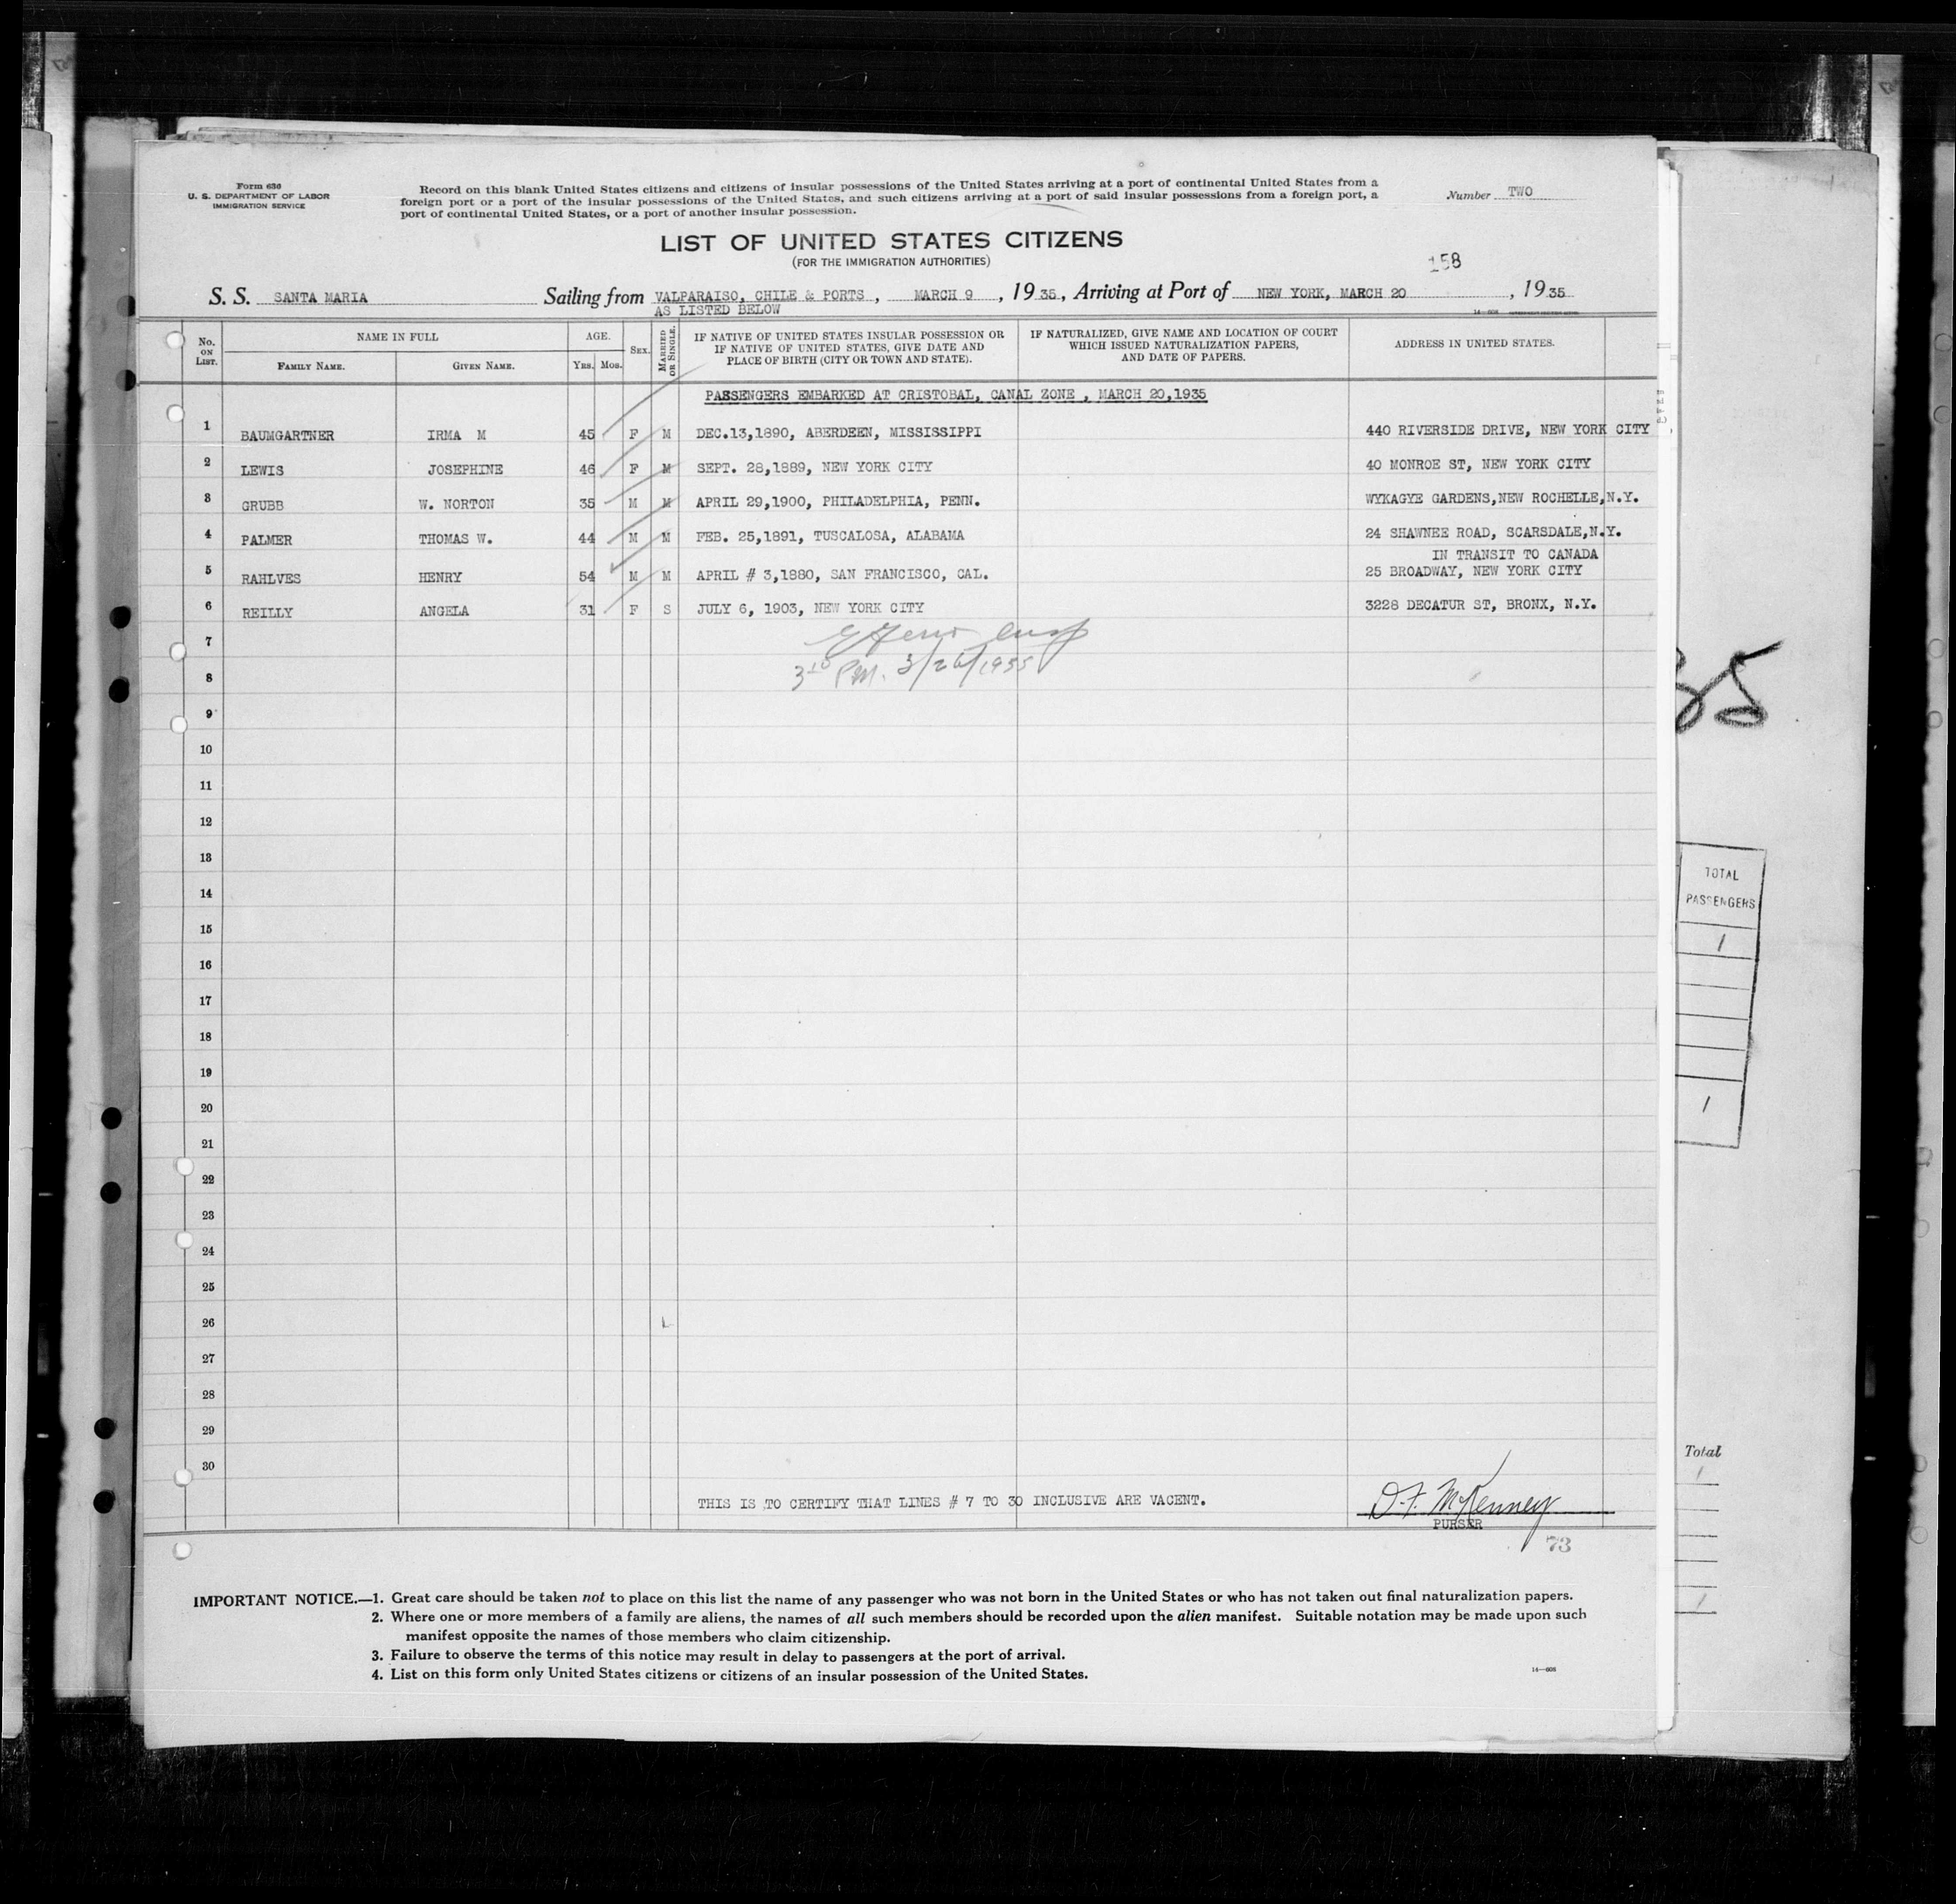 Form 630
U. S. DEPARTMENT OF LABOR
IMMIGRATION SERVICE
Record on this blank United States citizens and citizens of insular possessions of the United States arriving at a port of continental United States from a
foreign port or a port of the insular possessions of the United States, and such citizens arriving at a port of said insular possessions from a foreign port, a
port of continental United States, or a port of another insular possession.
Number TWO
LIST OF UNITED STATES CITIZENS
(FOR THE IMMIGRATION AUTHORITIES)
158
S. S. SANTA MARIA Sailing from VALPARAISO, CHILE & PORTS, MARCH 9, 1935, Arriving at Port of NEW YORK, MARCH 20, 1935
AS LISTED BELOW
No. ON LIST. NAME IN FULL FAMILY NAME. GIVEN NAME. AGE. YRS. MOS. SEX. MARRIED OR SINGLE. IF NATIVE OF UNITED STATES INSULAR POSSESSION OR IF NATIVE OF UNITED STATES, GIVE DATE AND PLACE OF BIRTH (CITY OR TOWN AND STATE). IF NATURALIZED, GIVE NAME AND LOCATION OF COURT WHICH ISSUED NATURALIZATION PAPERS, AND DATE OF PAPERS. ADDRESS IN UNITED STATES.
PASSENGERS EMBARKED AT CRISTOBAL, CANAL ZONE , MARCH 20,1935
1 BAUMGARTNER IRMA M 45 F M DEC.13,1890, ABERDEEN, MISSISSIPPI 440 RIVERSIDE DRIVE, NEW YORK CITY
2 LEWIS JOSEPHINE 46 F M SEPT. 28,1889, NEW YORK CITY 40 MONROE ST, NEW YORK CITY
3 GRUBB W. NORTON 35 M M APRIL 29,1900, PHILADELPHIA, PENN. WYKAGYE GARDENS,NEW ROCHELLE,N.Y.
4 PALMER THOMAS W. 44 M M FEB. 25,1891, TUSCALOSA, ALABAMA 24 SHAWNEE ROAD, SCARSDALE,N.Y.
IN TRANSIT TO CANADA
5 RAHLVES HENRY 54 M M APRIL # 3,1880, SAN FRANCISCO, CAL. 25 BROADWAY, NEW YORK CITY
6 REILLY ANGELA 31 F S JULY 6, 1903, NEW YORK CITY 3228 DECATUR ST, BRONX, N.Y.
7
PM. 3/26/1935
8
9
10
11
12
13
14
15
16
17
18
19
20
21
22
23
24
25
26
27
28
29
30
THIS IS TO CERTIFY THAT LINES # 7 TO 30 INCLUSIVE ARE VACENT.
D. F. McKenney
PURSER
73
IMPORTANT NOTICE.—1. Great care should be taken not to place on this list the name of any passenger who was not born in the United States or who has not taken out final naturalization papers.
2. Where one or more members of a family are aliens, the names of all such members should be recorded upon the alien manifest. Suitable notation may be made upon such
manifest opposite the names of those members who claim citizenship.
3. Failure to observe the terms of this notice may result in delay to passengers at the port of arrival.
4. List on this form only United States citizens or citizens of an insular possession of the United States.
35
TOTAL
PASSENGERS
1
1
Total
1
1